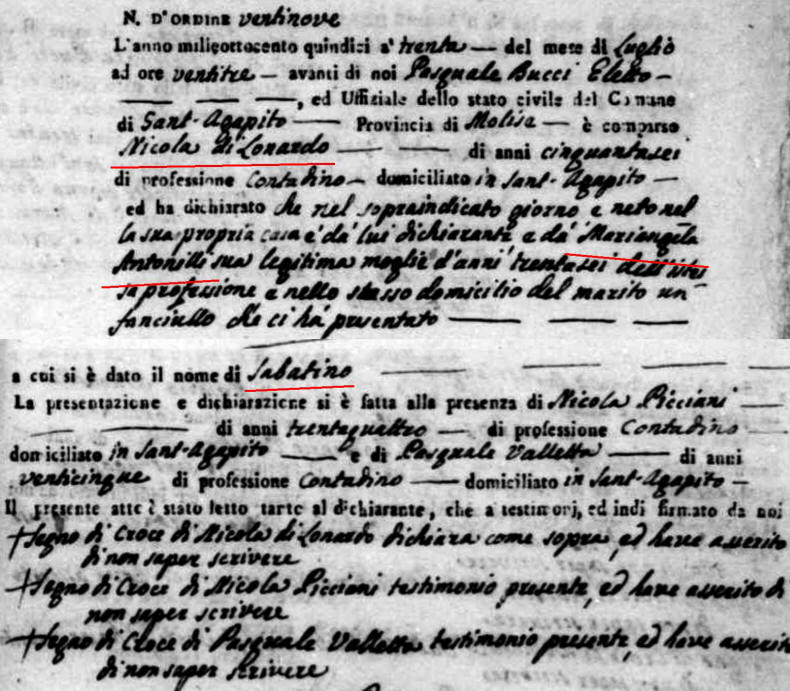 N. D'ORDINE ventinove
L'anno milleottocento quindici a' trenta — del mese di Luglio
ad ore ventitre — avanti di noi Pasquale Bucci Eletto —
— — — —, ed Uffiziale dello stato civile del Comune
di Sant-Agapito — Provincia di Molise — è comparso
Nicola di Lonardo — — — di anni cinquantasei
di professione Contadino — domiciliato in Sant-Agapito —
ed ha dichiarato che nel sopraindicato giorno e neto nel
la sua propria casa e' da' lui dichiarante e da' Mariangela
Antonilli sua legitima moglie d'anni trentasei dell'istes
sa professione e nello stesso domicilio del marito un
fanciullo che ci ha' presentato — — —
a cui si è dato il nome di Sabatino — — —
La presentazione e dichiarazione si è fatta alla presenza di Nicola Picciani —
— — di anni trentaquattro — di professione Contadino —
domiciliato in Sant-Agapito — e di Pasquale Valletta — di anni
venticinque di professione Contadino — domiciliato in Sant-Agapito —
Il presente atto è stato letto tanto al dichiarante, che a' testimonj, ed indi firmato da noi
+ Segno di Croce di Nicola di Lonardo dichiara come sopra, ed have asserito
di non saper scrivere
+ Segno di Croce di Nicola Picciani testimonio presente, ed have asserito di
non saper scrivere
+ Segno di Croce di Pasquale Valletta testimonio presente, ed have asserito
di non saper scrivere